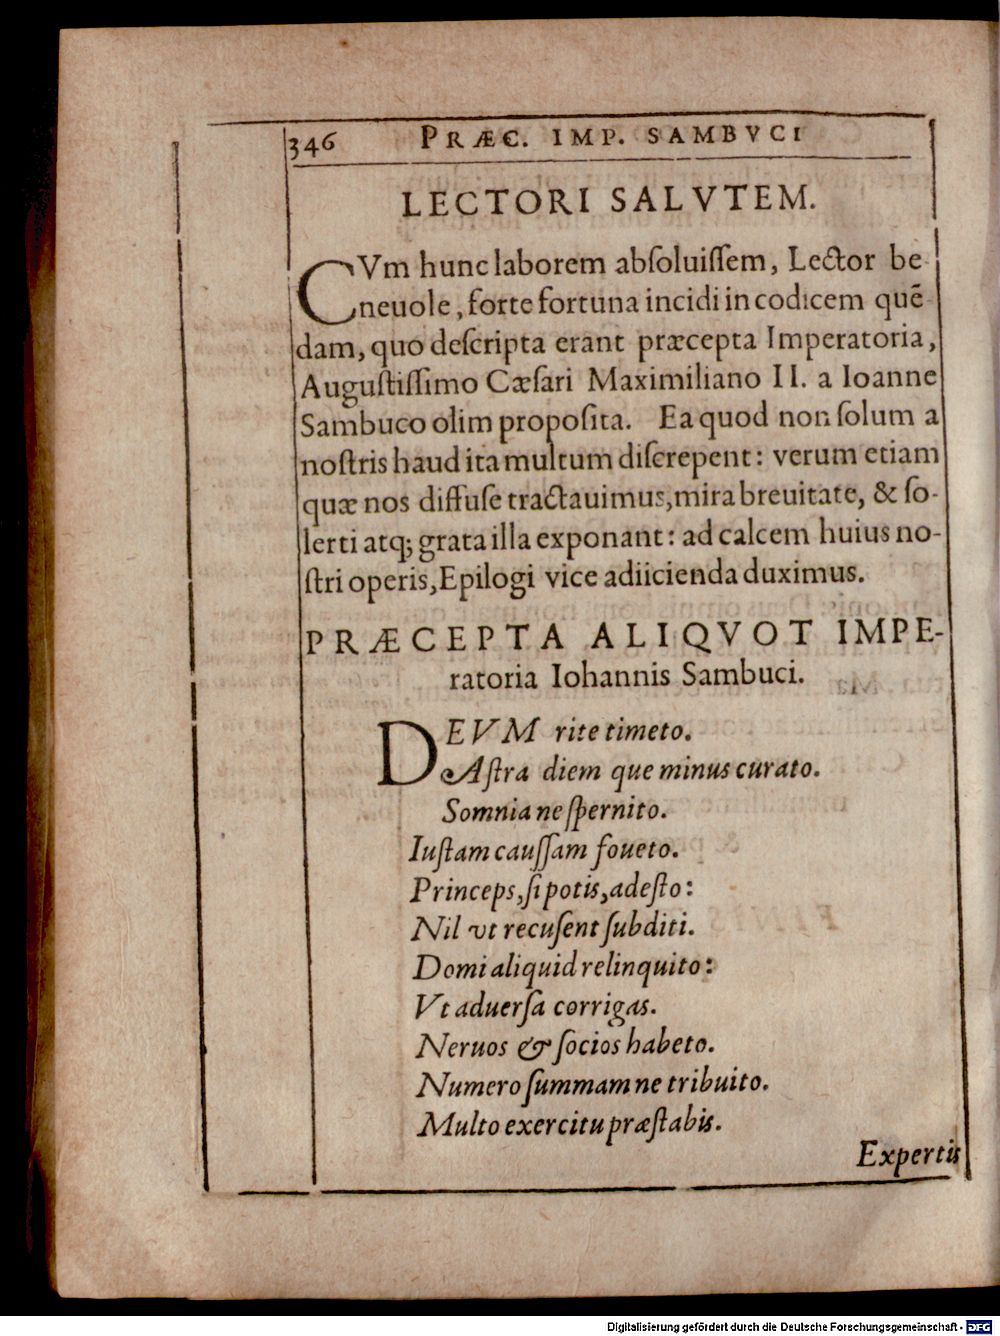 346 PRÆC. IMP. SAMBVCI
LECTORI SALVTEM.
CVm hunc laborem abſoluiſſem, Lector be-
neuole, forte fortuna incidi in codicem quē-
dam, quo deſcripta erant præcepta Imperatoria,
Auguſtiſſimo Cæſari Maximiliano II. a Ioanne
Sambuco olim propoſita. Ea quod non ſolum a
noſtris haud ita multum diſcrepent: verum etiam
quæ nos diffuſe tractauimus, mira breuitate, & ſo-
lerti atq; grata illa exponant: ad calcem huius no-
ſtri operis, Epilogi vice adiicienda duximus.
PRÆCEPTA ALIQVOT IMPE-
ratoria Iohannis Sambuci.
DEVM rite timeto.
Aſtra diem que minus curato.
Somnia ne ſpernito.
Iuſtam cauſſam foueto.
Princeps, ſi potis, adeſto:
Nil vt recuſent ſubditi.
Domi aliquid relinquito:
Vt aduerſa corrigas.
Neruos & ſocios habeto.
Numero ſummam ne tribuito.
Multo exercitu præſtabis.
Expertis
Digitalisierung gefördert durch die Deutsche Forschungsgemeinschaft - DFG